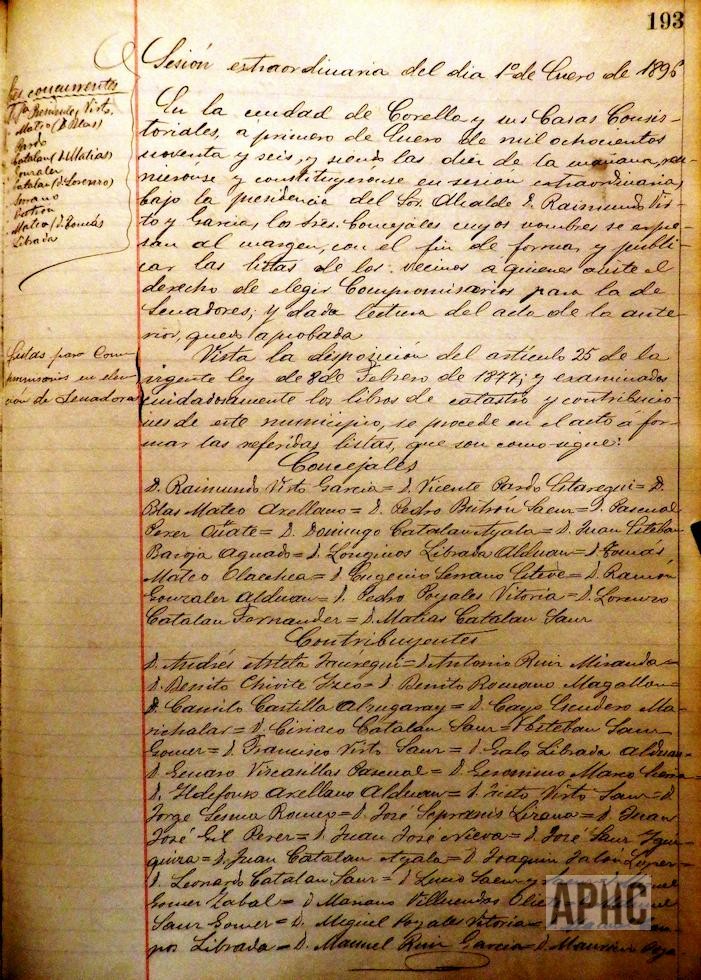 193
Sesión extraordinaria del dia 1º de Enero de 1896
Sres concurrentes
Presidente, Virto,
Mateo (D. Blas)
Pardo
Catalan (d. Matias)
Gonzalez
Catalan (d. Lorenzo)
Serrano
Butron
Mateo (d. Tomás)
Librada
En la ciudad de Corella y sus Casas Consis-
toriales, a primero de Enero de mil ochocientos
noventa y seis, y siendo las diez de la mañana, reu-
nieronse y constituyeronse en sesión extraordinaria,
bajo la presidencia del Sor. Alcalde D. Raimundo Vir-
to y Garcia, los Sres. Concejales cuyos nombres se expre-
san al margen, con el fin de formar y publi-
car las listas de los vecinos á quienes asiste el
derecho de elegir Compromisarios para la de
Senadores; y dada lectura del acta de la ante-
rior, quedó aprobada
Listas para Com-
promisarios en elec-
cion de Senadores
Vista la disposición del artículo 25 de la
vigente ley de 8 de Febrero de 1877; y examinados
cuidadosamente los libros de catastro y contribucio-
nes de este municipio, se procede en el acto á for-
mar las referidas listas, que son como sigue:
Concejales
D. Raimundo Virto Garcia = D. Vicente Pardo = D.
Blas Mateo Arellano = D. Pedro Butrón Saenz = D. Pascual
Perez Oñate = D. Domingo Catalan Ayala = D. Juan Esteban
Baroja Aguado = D. Longinos Librada Alduan = D. Tomás
Mateo Olaechea = D. Eugenio Serrano Esteve = D. Ramón
Gonzalez Alduan = D. Pedro Poyales Vitoria = D. Lorenzo
Catalan Fernandez = D. Matias Catalan Sanz
Contribuyentes
D. Andrés Arteta Jauregui = D. Antonio Ruiz Miranda =
D. Benito Chivite Yzco = D. Benito Romano Magallon =
D. Camilo Castilla Alzugaray = D. Cayo Escudero Ma-
richalar = D. Ciriaco Catalan Sanz = D. Esteban Sanz
Gomez = D. Francisco Virto Sanz = D. Galo Librada Alduan =
D. Genaro Viscasillas Pascual = D. Geronimo Marco Sierra =
D. Ildefonso Arellano Alduan = D. Justo Virto Sanz = D.
Jorge Sesma Romeo = D. José Sopranis Lizana = D. Juan
José Gil Perez = D. Juan José Nieva = D. José Sanz
= D. Juan Catalan Ayala = D. Joaquin Jalon Lopez =
D. Leonardo Catalan Sanz = D. Lucio Saenz y
Gomez Zabal = D. Mariano Villuendas
Sanz Gomez = D. Miguel Poyales Vitoria =
Librada = D. Manuel Ruiz Garcia = D.
APHC